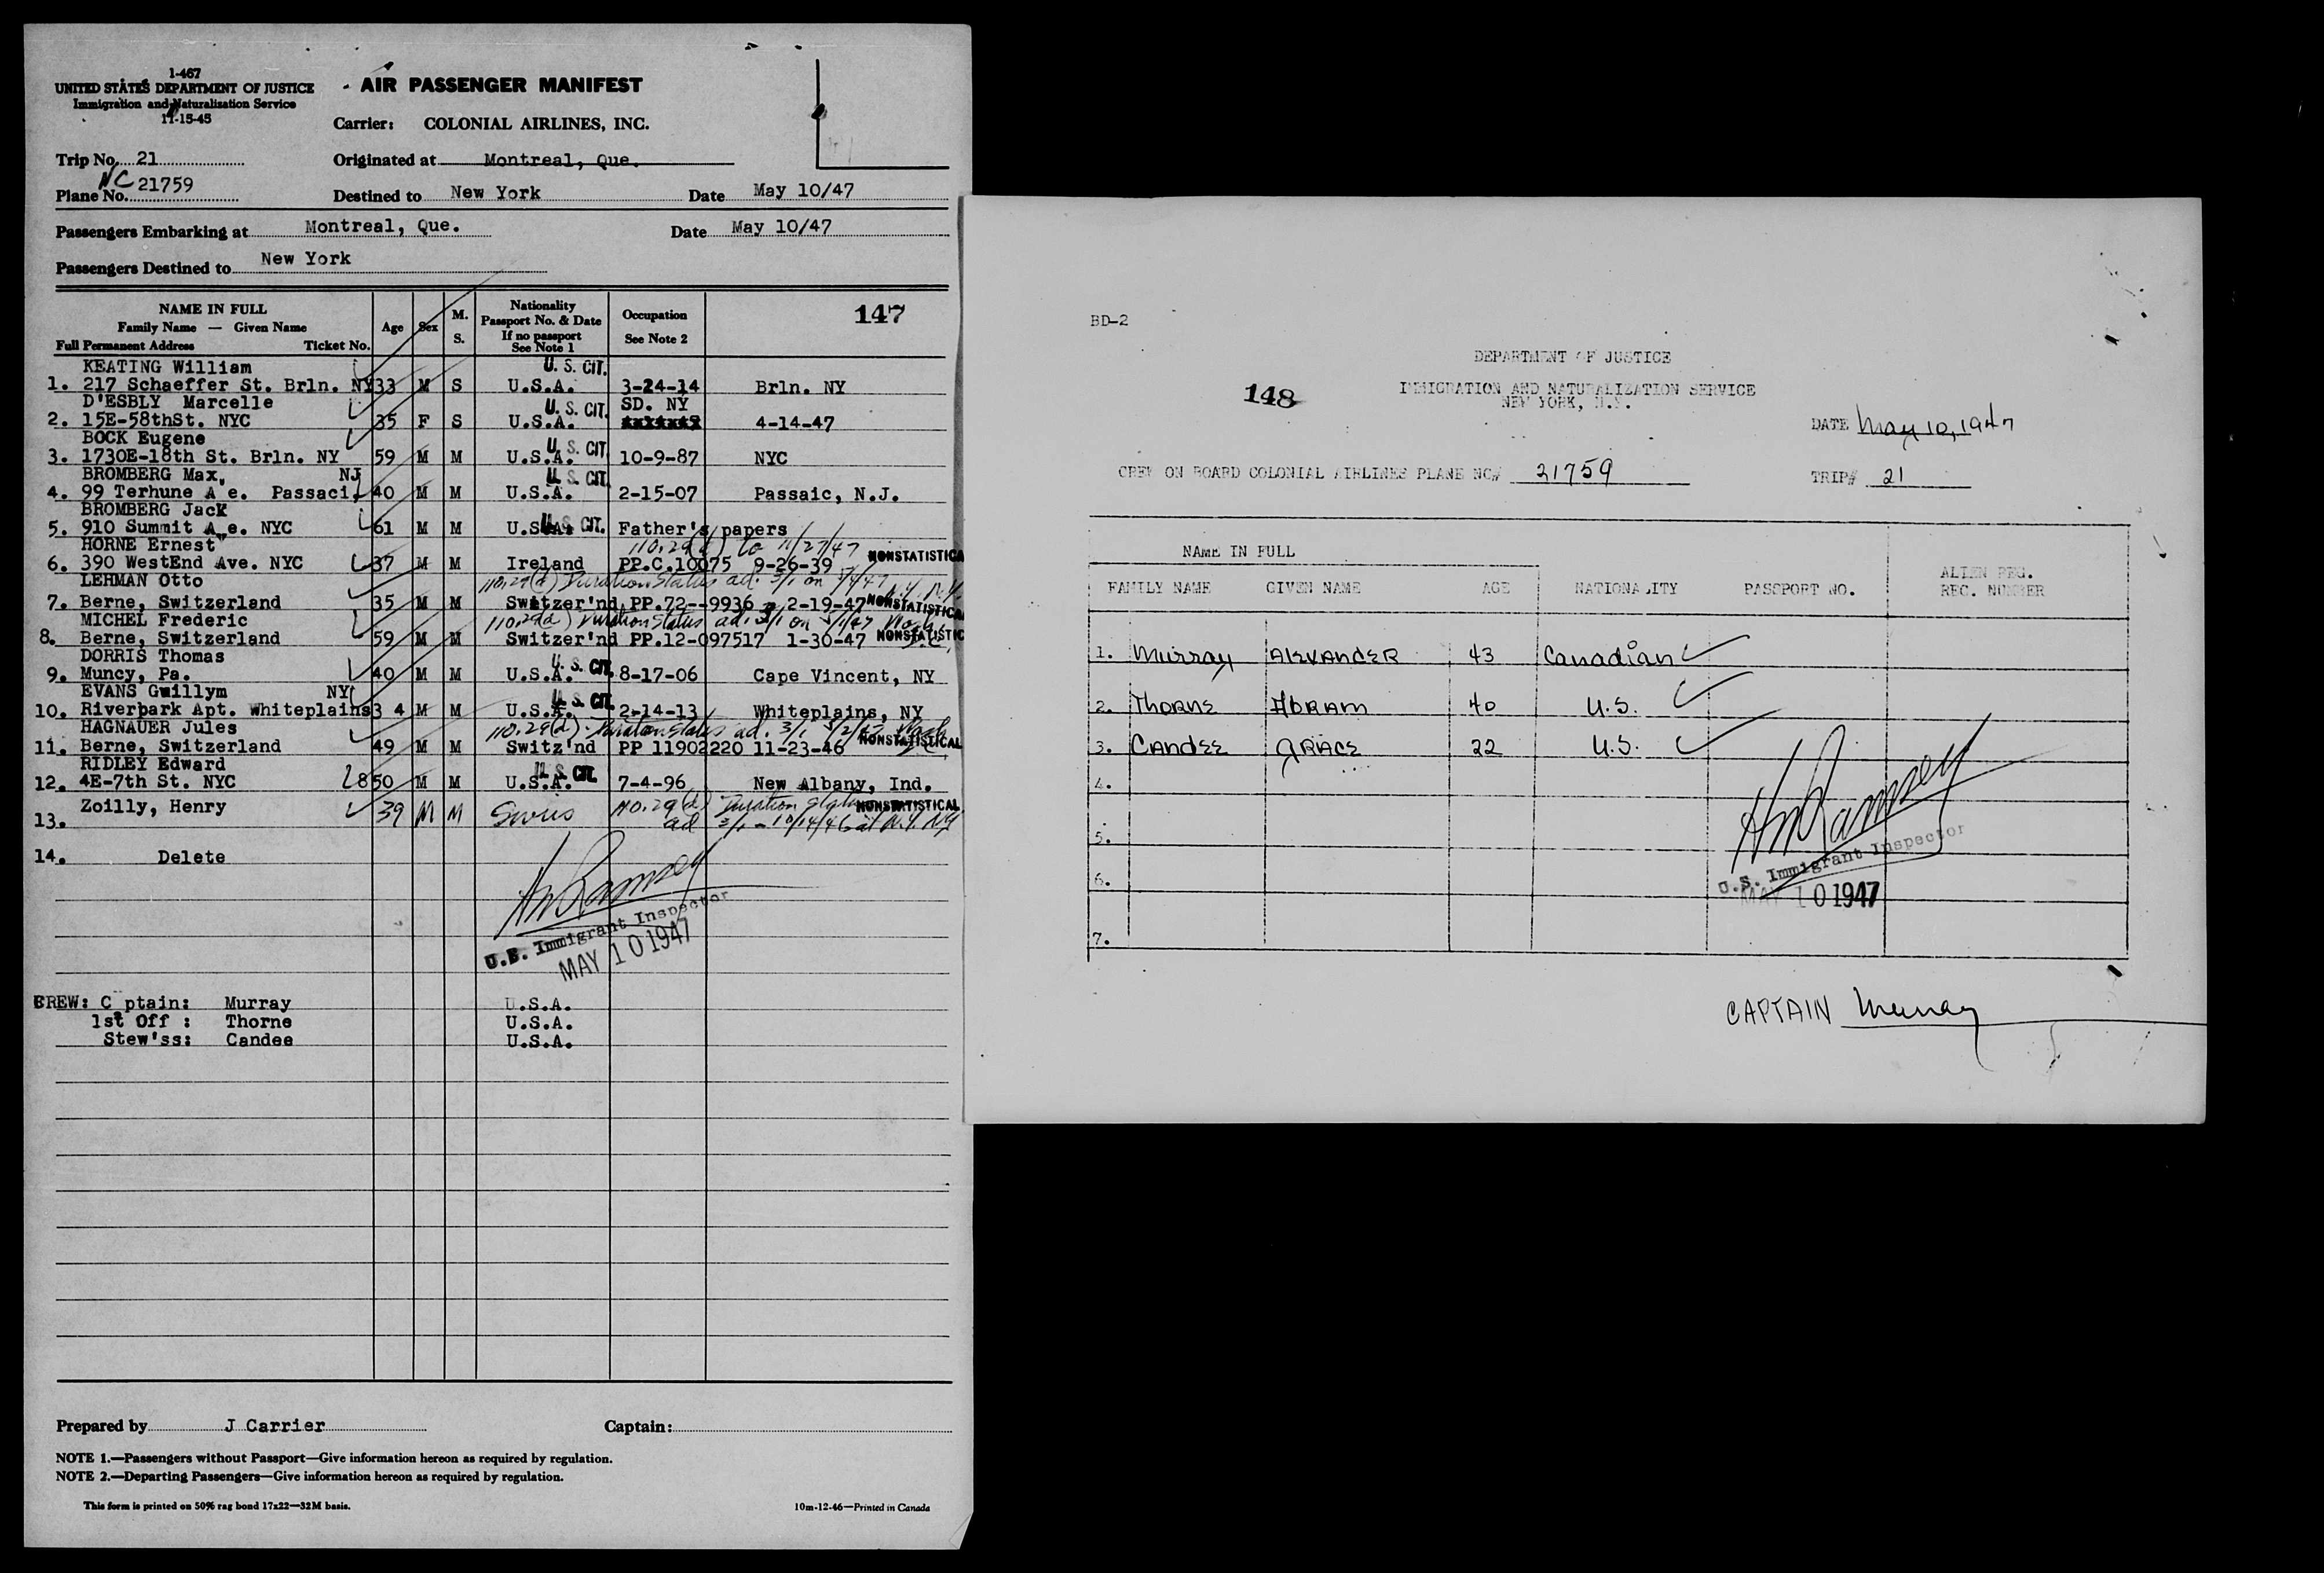 1-467
UNITED STATES DEPARTMENT OF JUSTICE
Immigration and Naturalization Service
11-15-45
AIR PASSENGER MANIFEST
Carrier: COLONIAL AIRLINES, INC.
Trip No. 21
Originated at Montreal, Que.
Plane No. NC 21759
Destined to New York Date May 10/47
Passengers Embarking at Montreal, Que. Date May 10/47
Passengers Destined to New York
NAME IN FULL
Family Name — Given Name
Full Permanent Address Ticket No.
Age Sex M. S.
Nationality
Passport No. & Date
If no passport
See Note 1
Occupation
See Note 2
147
KEATING William U. S. CIT.
1. 217 Schaeffer St. Brln. NY 33 M S U.S.A. 3-24-14 Brln. NY
D'ESBLY Marcelle U. S. CIT. SD. NY
2. 15E-58thSt. NYC 35 F S U.S.A. 4-14-47
BOCK Eugene U. S. CIT.
3. 1730E-18th St. Brln. NY 59 M M U.S.A. 10-9-87 NYC
BROMBERG Max, NJ U. S. CIT.
4. 99 Terhune A e. Passaci, 40 M M U.S.A. 2-15-07 Passaic, N.J.
BROMBERG Jack
5. 910 Summit A e. NYC 61 M M U.S.A. U. S. CIT. Father's papers
HORNE Ernest 110.29(d) to 11/27/47 NONSTATISTICA
6. 390 WestEnd Ave. NYC 37 M M Ireland PP.C.10075 9-26-39
LEHMAN Otto 110.29(d) Duration Status ad. 3/1 on N.Y. N.Y.
7. Berne, Switzerland 35 M M Switzer'nd PP.72--9936 2-19-47 NONSTATISTICA
MICHEL Frederic 110.29(d) Duration Status ad. 3/1 on
8. Berne, Switzerland 59 M M Switzer'nd PP.12-097517 1-30-47 NONSTATISTIC
DORRIS Thomas U. S. CIT.
9. Muncy, Pa. 40 M M U.S.A. 8-17-06 Cape Vincent, NY
EVANS Gwillym NY U. S. CIT.
10. Riverpark Apt. Whiteplains 3 4 M M U.S.A. 2-14-13 Whiteplains, NY
HAGNAUER Jules 110.29(d) Duration Status ad. 3/1
11. Berne, Switzerland 49 M M Switz'nd PP 11902220 11-23-46 NONSTATISTICAL
RIDLEY Edward U. S. CIT.
12. 4E-7th St. NYC 850 M M U.S.A. 7-4-96 New Albany, Ind.
Zoilly, Henry 39 M M Swiss 110.29(d) Duration Status NONSTATISTICAL
13. ad 3/1 - 10/14/46 at N.Y. NY
14. Delete
HnRamsey
U.S. Immigrant Inspector
MAY 10 1947
CREW: C ptain: Murray U.S.A.
1st Off : Thorne U.S.A.
Stew'ss: Candee U.S.A.
Prepared by J Carrier Captain:
NOTE 1.—Passengers without Passport—Give information hereon as required by regulation.
NOTE 2.—Departing Passengers—Give information hereon as required by regulation.
This form is printed on 50% rag bond 17x22—32M basis. 10m-12-46—Printed in Canada
BD-2
DEPARTMENT OF JUSTICE
148
IMMIGRATION AND NATURALIZATION SERVICE
NEW YORK, N.Y.
DATE May 10, 1947
CREW ON BOARD COLONIAL AIRLINES PLANE NO# 21759 TRIP# 21
NAME IN FULL
FAMILY NAME GIVEN NAME AGE NATIONALITY PASSPORT NO. ALIEN REG. REC. NUMBER
1. Murray ALEXANDER 43 Canadian
2. THORNE HDRAM 40 U.S.
3. CANDEE GRACE 22 U.S.
4.
5.
6.
7.
HnRamsey
U.S. Immigrant Inspector
MAY 10 1947
CAPTAIN Murray